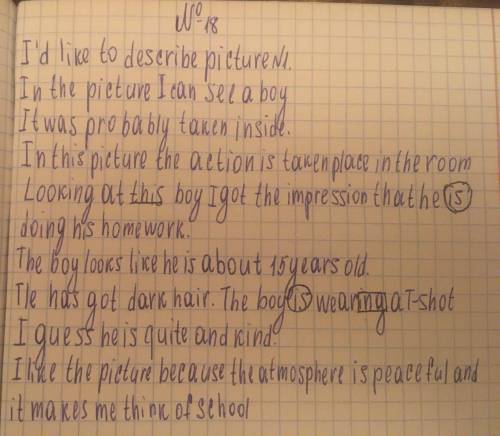 № 18
I'd like to describe picture №1.
In the picture I can see a boy
It was probably taken inside.
In this picture the action is taken place in the room
Looking at this boy I got the impression that he is
doing his homework.
The boy looks like he is about 15 years old.
He has got dark hair. The boy is wearing a T-shot
I guess he is quite and kind.
I like the picture because the atmosphere is peaceful and
it makes me think of school